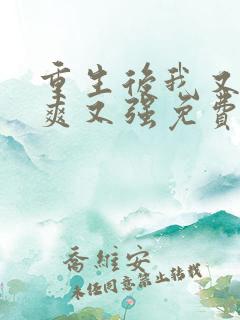 重生后我又
爽又强免费
乔维安
未经同意禁止转载